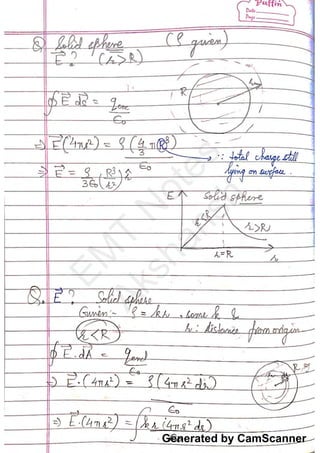 Puffin
Date
Page
Q. Solid sphere (ρ given)
E⃗? (r>R)
R r
∮E⃗.ds⃗ = q_enc/ε₀
⇒ E⃗(4πr²) = ρ(4/3 πR³)/ε₀ → ∵ total charge still lying on surface.
⇒ E⃗ = ρ/3ε₀ (R³/r²) r̂
E Solid sphere
r<R r>R
r=R r
Q. E⃗? Solid sphere
Given:- ρ = kr, some k &
r<R r: distance from origin
∮E⃗.dA⃗ = q_encl/ε₀
⇒ E⃗.(4πr²) = ρ(4πr²dr)/ε₀
R
⇒ E⃗.(4πr²) = ∫kr(4πr²dr)
EMT Notes
Generated by CamScanner